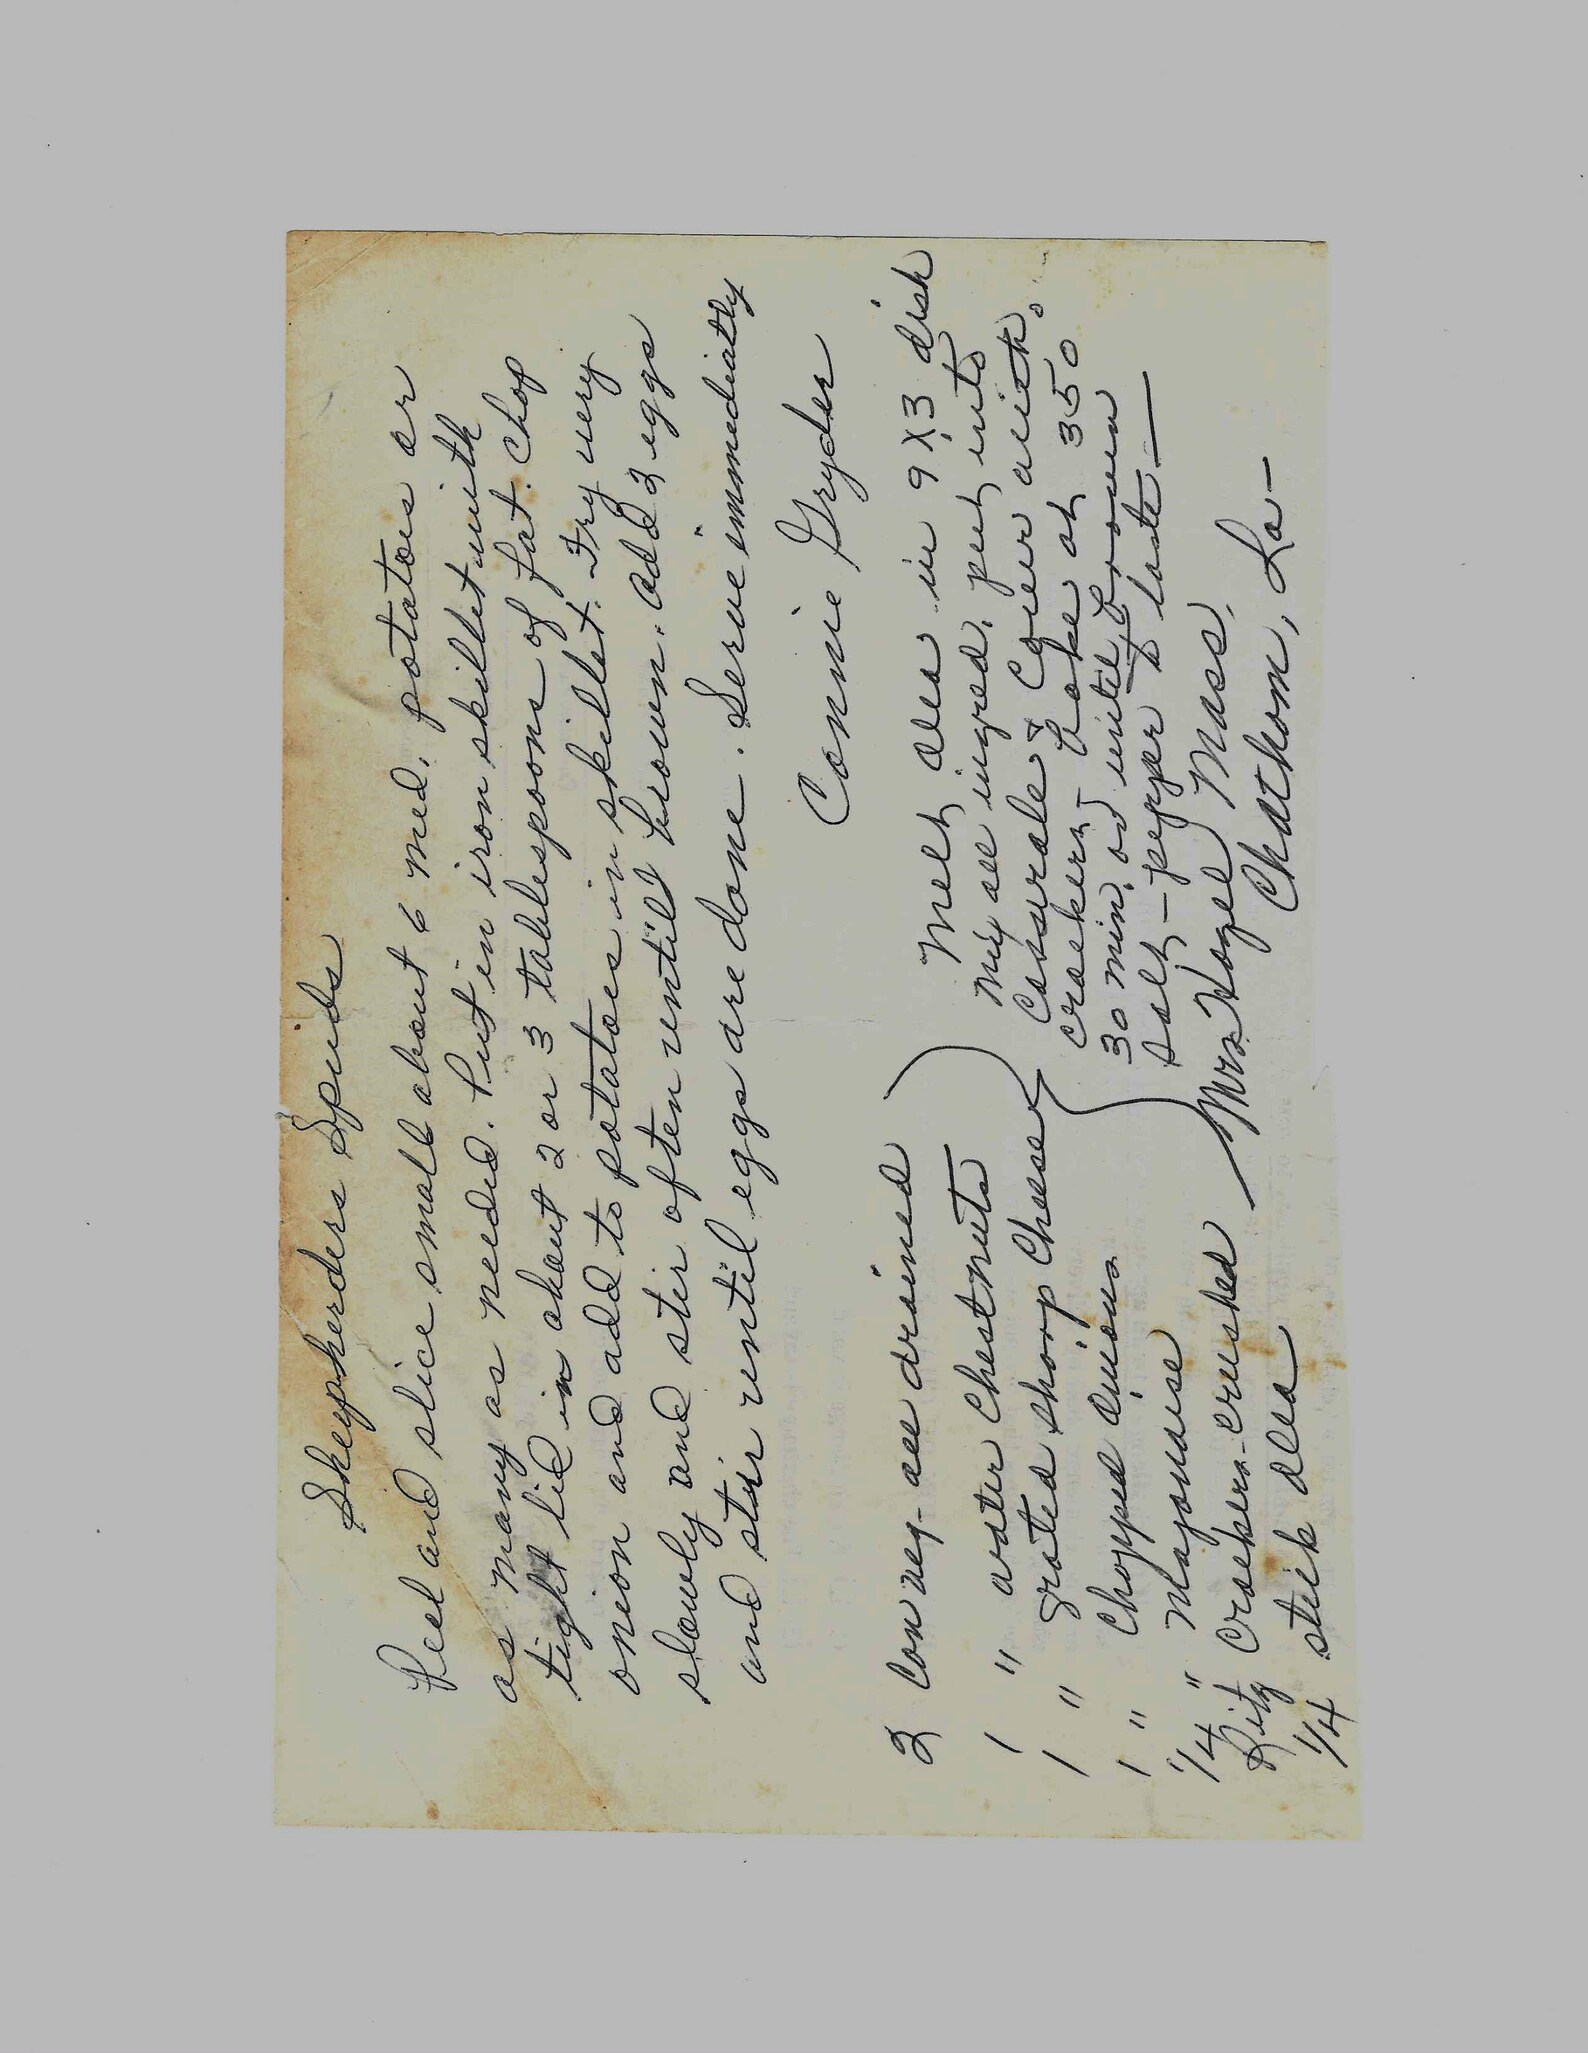 Sheepherders Spuds
Peel and slice small about 6 med. potatoes or
as many as needed. Put in iron skillet with
tight lid in about 2 or 3 tablespoons of fat. Chop
onion and add to potatoes in skillet. Fry very
slowly and stir often until brown. Add 2 eggs
and stir until eggs are done. Serve immediatly
Connie Gryder
2 Can veg-all drained
1 " water Chestnuts
1 " grated sharp Cheese
1 " Chopped Onions
1/4 " Mayonaise
Ritz Crackers-crushed
1/4 stick Oleo
Melt Oleo in 9X3 dish
Mix all ingred, put into
Casserole & Cover with
crackers- bake at 350°
30 min, or until brown
salt - pepper to taste -
Mrs. Hazel Mass,
Chatham, La-